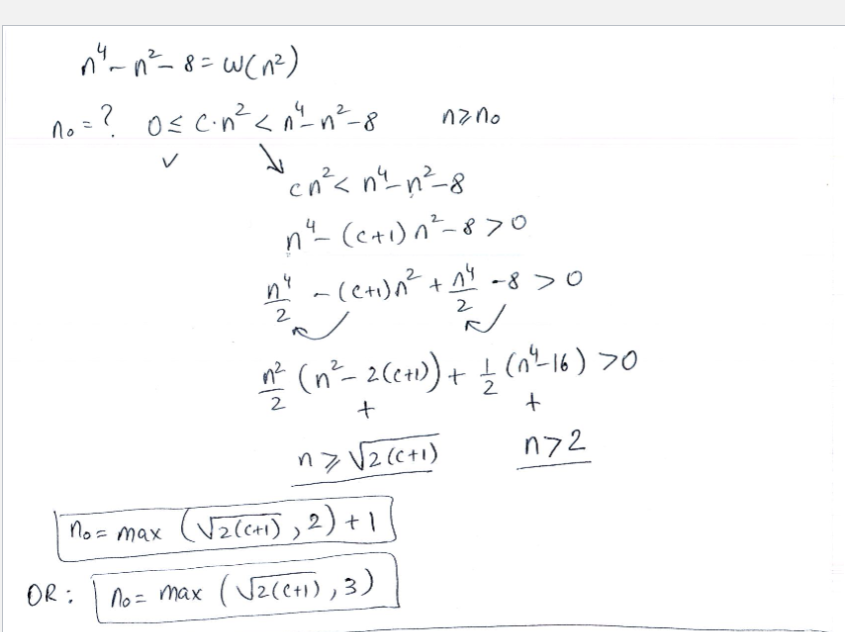 n⁴ - n² - 8 = ω(n²)
n₀ = ? 0 ≤ c·n² < n⁴ - n² - 8 n ≥ n₀
✓ ↘
cn² < n⁴ - n² - 8
n⁴ - (c+1) n² - 8 > 0
n⁴/2 - (c+1)n² + n⁴/2 - 8 > 0
n²/2 (n² - 2(c+1)) + 1/2 (n⁴ - 16) > 0
+ +
n ≥ √2(c+1) n > 2
n₀ = max (√2(c+1) , 2) + 1
OR : n₀ = max (√2(c+1) , 3)